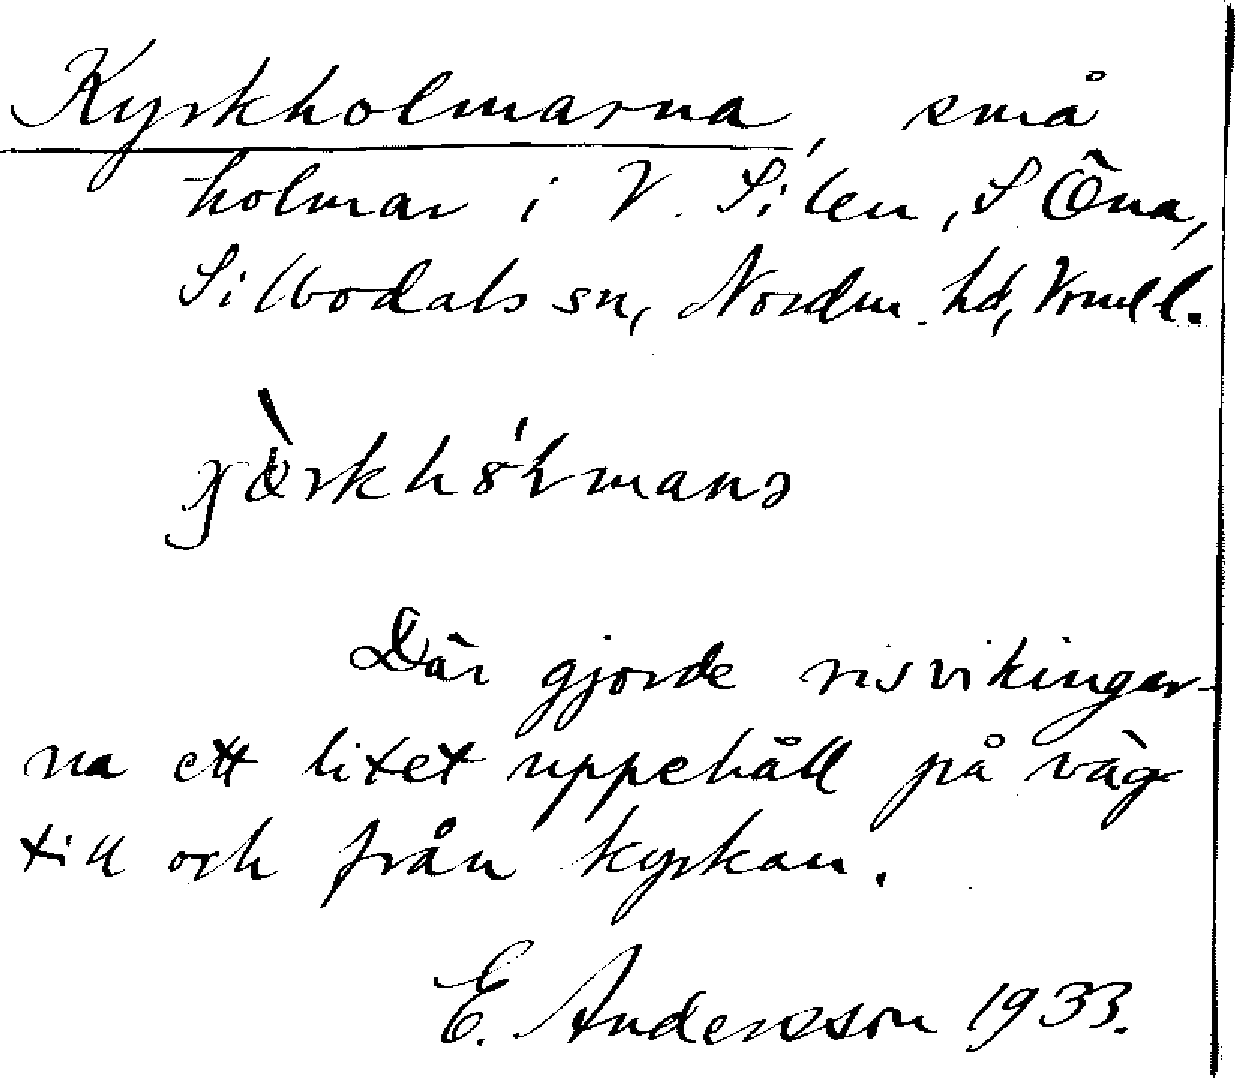 Kyrkholmarna, små
holmar i V. Silen, S Öna,
Silbodals sn, Nordm. hd, Vrml.
Där gjorde risvikingar-
na ett litet uppehåll på väg
till och från kyrkan.
E. Andersson 1933.